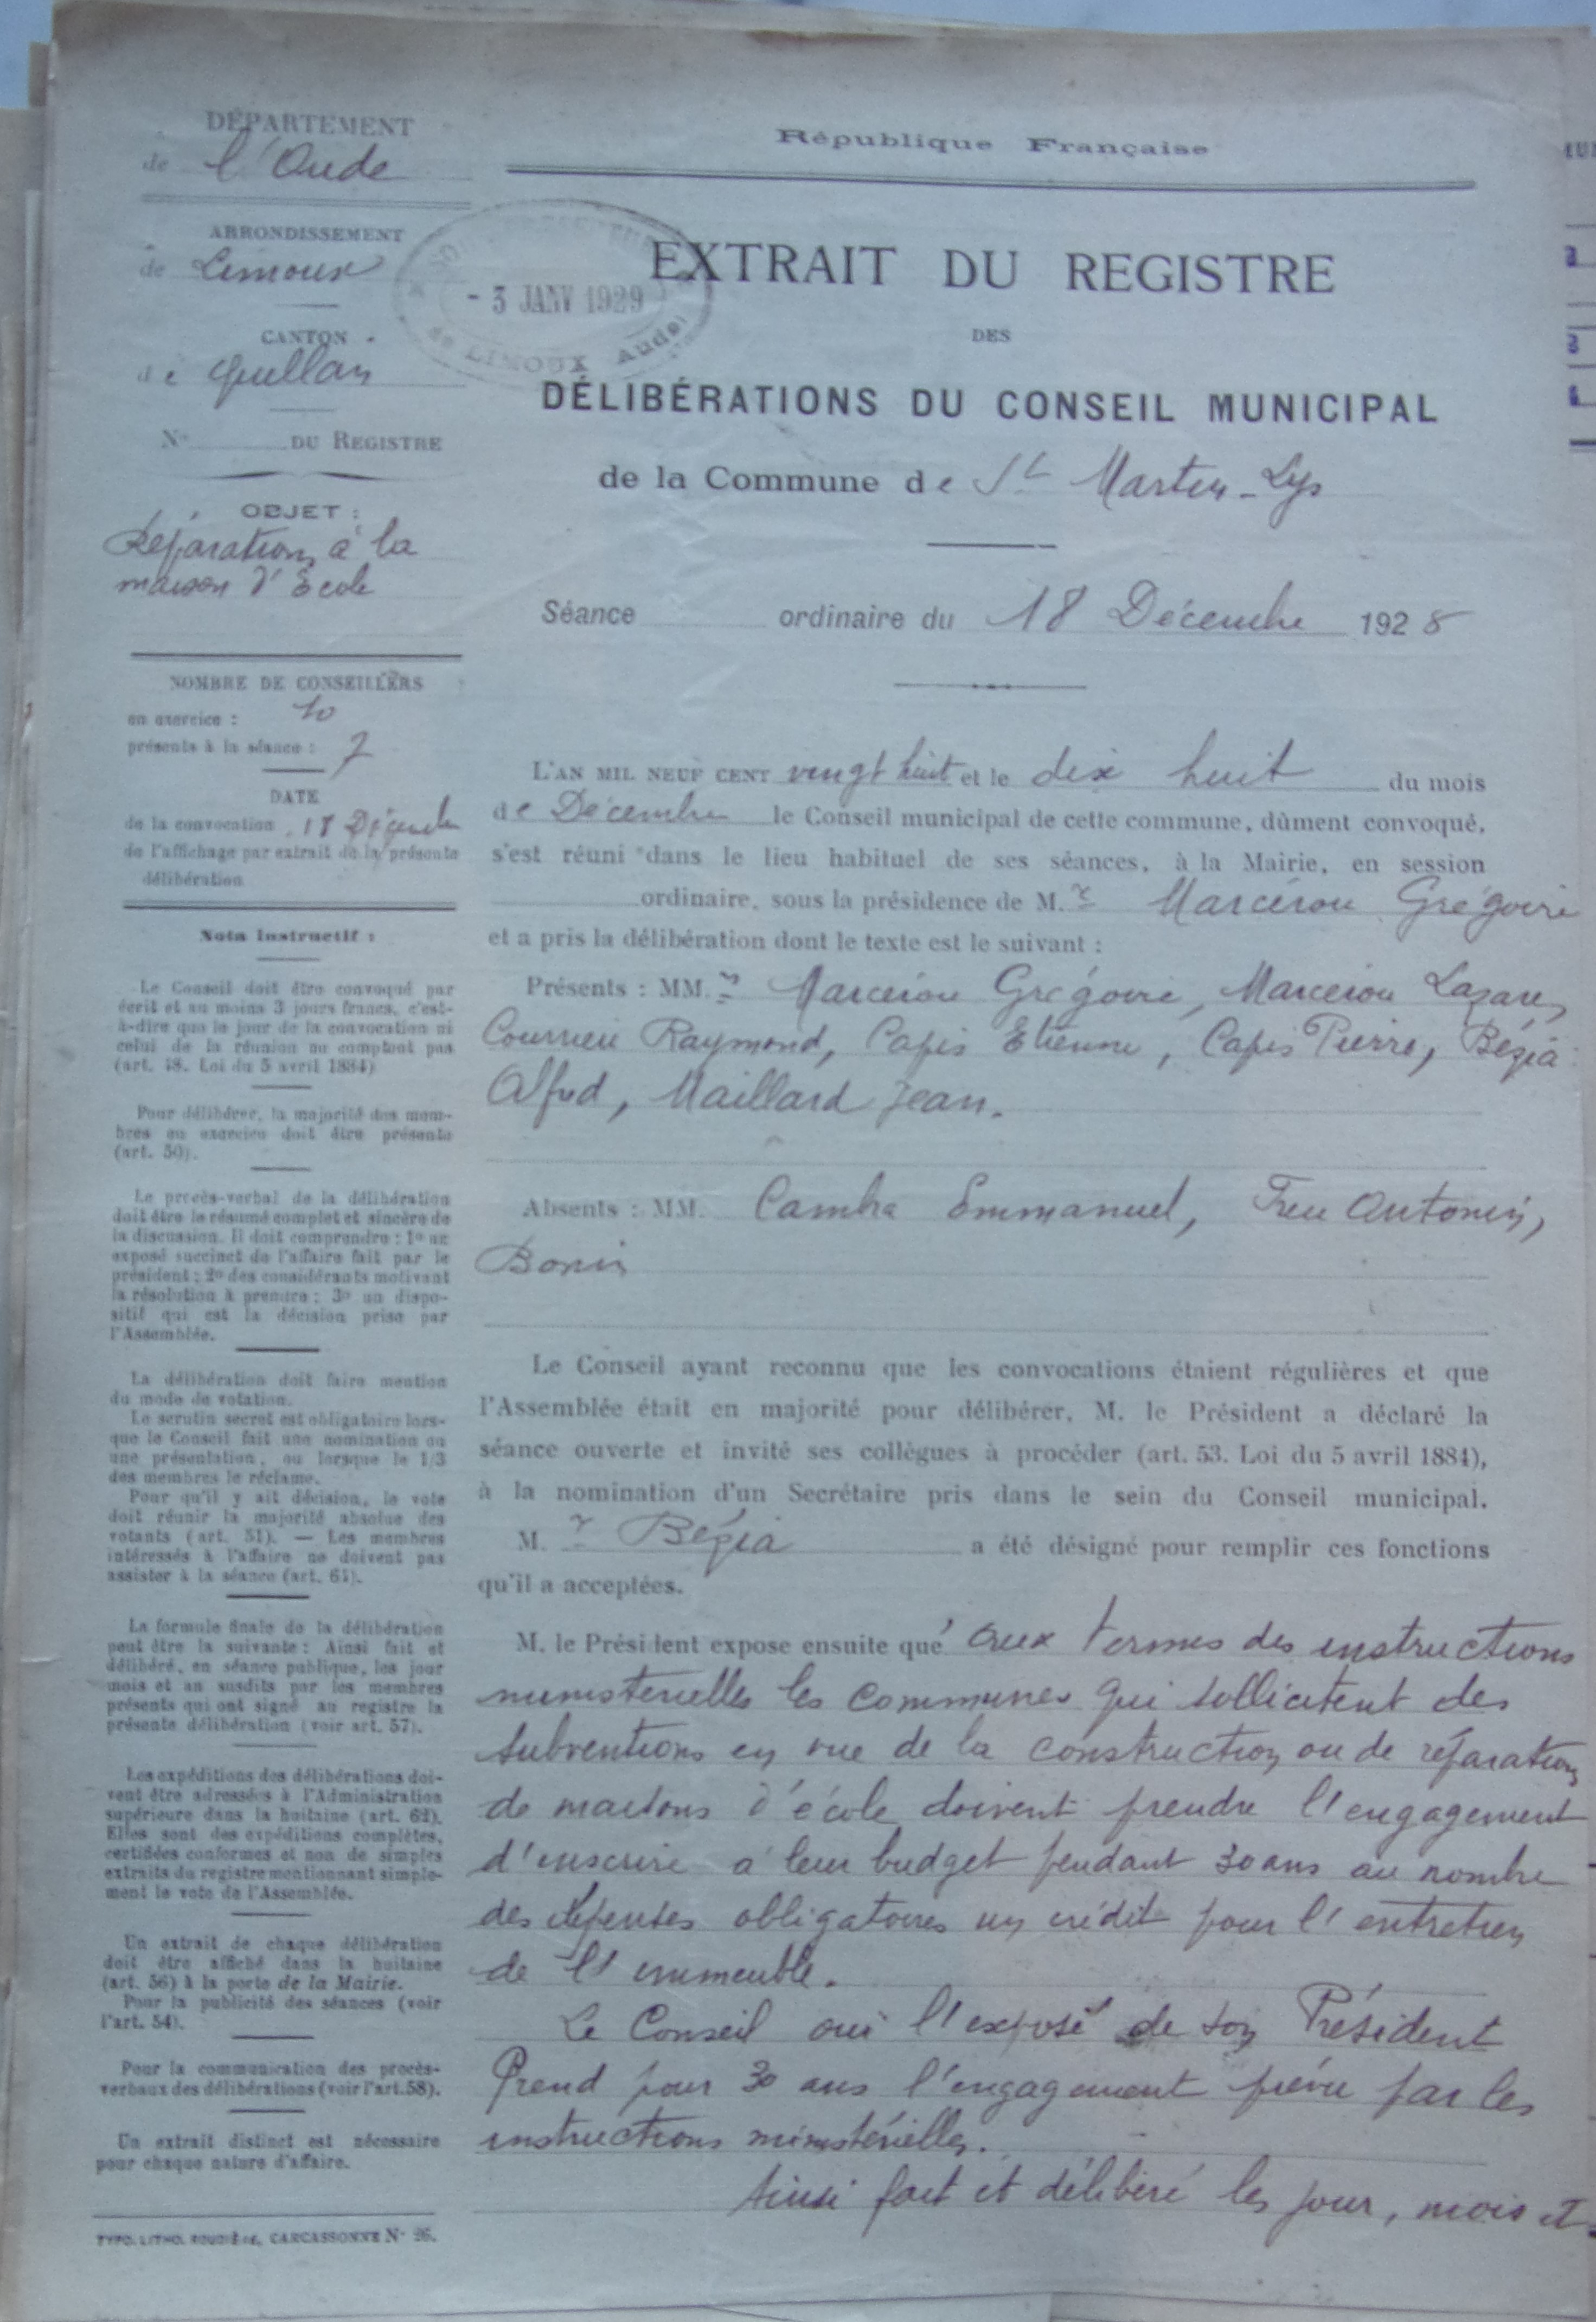 DÉPARTEMENT
de l'Aude
ARRONDISSEMENT
de Limoux
CANTON
de Quillan
No DU REGISTRE
OBJET :
Réparations à la
maison d'École
NOMBRE DE CONSEILLERS
en exercice : 10
présents à la séance : 7
DATE
de la convocation 18 Décembre
de l'affichage par extrait de la présente
délibération
Nota instructif :
Le Conseil doit être convoqué par
écrit et au moins 3 jours francs, c'est-
à-dire que le jour de la convocation ni
celui de la réunion ne comptent pas
(art. 48. Loi du 5 avril 1884)
Pour délibérer, la majorité des mem-
bres en exercice doit être présente
(art. 50).
Le procès-verbal de la délibération
doit être le résumé complet et sincère de
la discussion. Il doit comprendre : 1o un
exposé succinct de l'affaire fait par le
président ; 2o des considérants motivant
la résolution à prendre ; 3o un dispo-
sitif qui est la décision prise par
l'Assemblée.
La délibération doit faire mention
du mode de votation.
Le scrutin secret est obligatoire lors-
que le Conseil fait une nomination ou
une présentation, ou lorsque le 1/3
des membres le réclame.
Pour qu'il y ait décision, le vote
doit réunir la majorité absolue des
votants (art. 51). — Les membres
intéressés à l'affaire ne doivent pas
assister à la séance (art. 64).
La formule finale de la délibération
peut être la suivante : Ainsi fait et
délibéré, en séance publique, les jour
mois et an susdits par les membres
présents qui ont signé au registre la
présente délibération (voir art. 57).
Les expéditions des délibérations doi-
vent être adressées à l'Administration
supérieure dans la huitaine (art. 62).
Elles sont des expéditions complètes,
certifiées conformes et non de simples
extraits du registre mentionnant simple-
ment le vote de l'Assemblée.
Un extrait de chaque délibération
doit être affiché dans la huitaine
(art. 56) à la porte de la Mairie.
Pour la publicité des séances (voir
l'art. 54).
Pour la communication des procès-
verbaux des délibérations (voir l'art. 58).
Un extrait distinct est nécessaire
pour chaque nature d'affaire.
TYPO. LITHO. CARCASSONNE No 26.
République Française
- 3 JANV 1929
de LIMOUX Aude
EXTRAIT DU REGISTRE
DES
DÉLIBÉRATIONS DU CONSEIL MUNICIPAL
de la Commune de St Martin-Lys
Séance ordinaire du 18 Décembre 1928
L'AN MIL NEUF CENT vingt huit et le dix huit du mois
de Décembre le Conseil municipal de cette commune, dûment convoqué,
s'est réuni dans le lieu habituel de ses séances, à la Mairie, en session
ordinaire, sous la présidence de M. r Marcérou Grégoire
et a pris la délibération dont le texte est le suivant :
Présents : MM. rs Marcérou Grégoire, Marcerou Lazare,
Courrieu Raymond, Capis Etienne, Capis Pierre, Bézia
Alfred, Maillard Jean.
Absents : MM. Cambra Emmanuel, Antonin,
Bonin
Le Conseil ayant reconnu que les convocations étaient régulières et que
l'Assemblée était en majorité pour délibérer, M. le Président a déclaré la
séance ouverte et invité ses collègues à procéder (art. 53. Loi du 5 avril 1884),
à la nomination d'un Secrétaire pris dans le sein du Conseil municipal.
M. r Bézia a été désigné pour remplir ces fonctions
qu'il a acceptées.
M. le Président expose ensuite que aux termes des instructions
ministérielles les communes qui sollicitent des
subventions en vue de la construction ou de réparations
de maisons d'école doivent prendre l'engagement
d'inscrire à leur budget pendant 30 ans au nombre
des dépenses obligatoires un crédit pour l'entretien
de l'immeuble.
Le Conseil oui l'exposé de son Président
Prend pour 30 ans l'engagement prévu par les
instructions ministérielles.
Ainsi fait et délibéré les jour, mois et